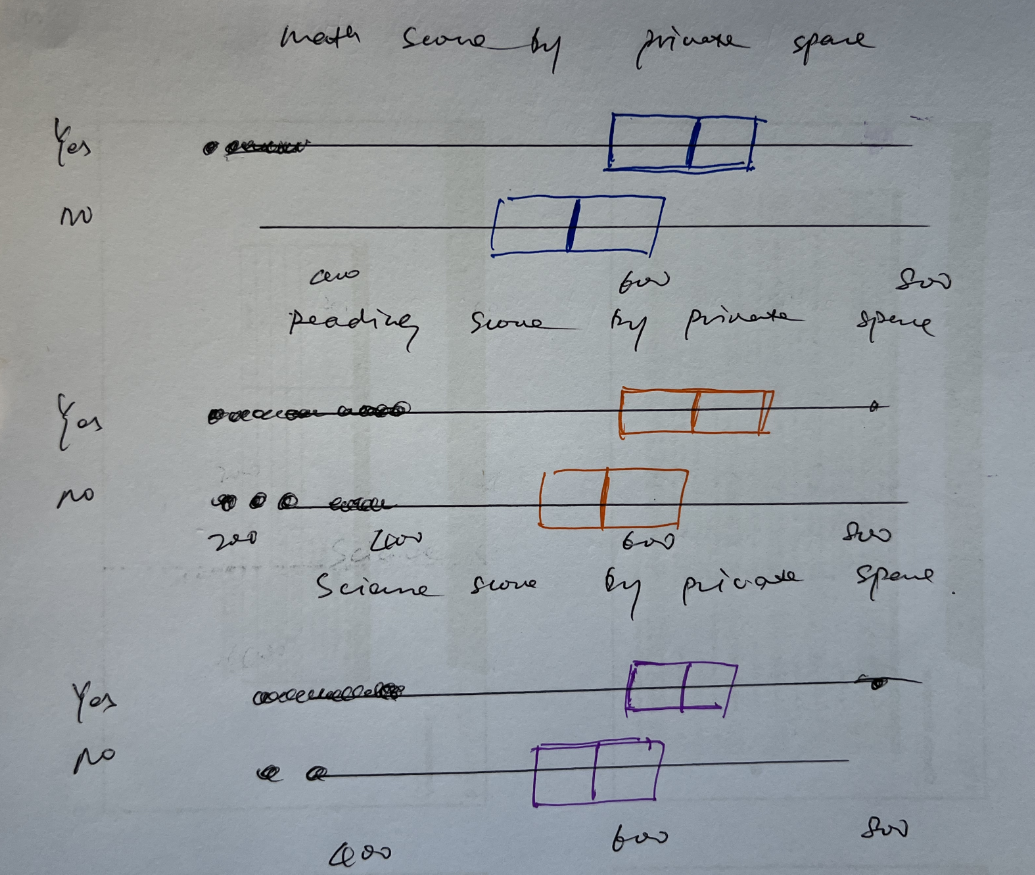 math score by private space
Yes
no
400 600 800
Reading score by private space
Yes
no
200 400 600 800
Science score by private space.
Yes
no
400 600 800